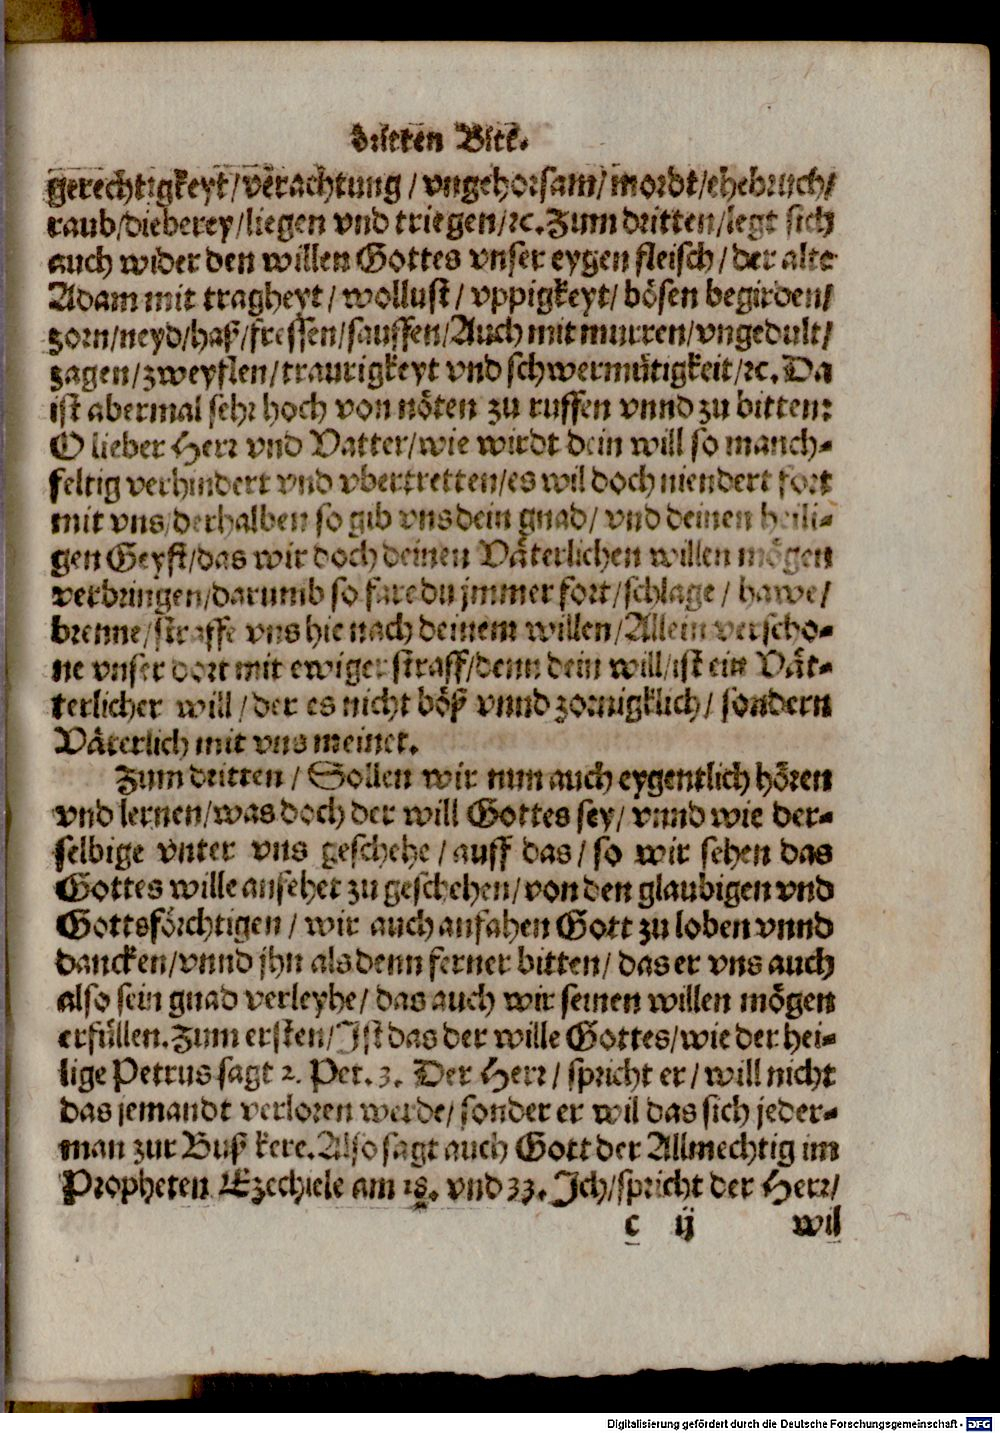 dritten Bitt.
gerechtigkeyt/verachtung/vngehorsam/mordt/ehebruch/
raub/dieberey/liegen vnd triegen/ꝛc. Zum dritten/legt sich
auch wider den willen Gottes vnser eygen fleisch/der alte
Adam mit tragheyt/wollust/vppigkeyt/bösen begirden/
zorn/neyd/haß/fressen/sauffen/Auch mit murren/vngedult/
zagen/zweyflen/traurigkeyt vnd schwermütigkeit/ꝛc. Da
ist abermal sehr hoch von nöten zu ruffen vnnd zu bitten:
O lieber Herr vnd Vatter/wie wirdt dein will so manch-
feltig verhindert vnd vbertretten/es wil doch niendert fort
mit vns/derhalben so gib vns dein gnad/vnd deinen heili-
gen Geyst/das wir doch deinen Väterlichen willen mögen
verbringen/darumb so fare du jmmer fort/schlage/hawe/
brenne/straffe vns hie nach deinem willen/Allein verscho-
ne vnser dort mit ewiger straff/denn dein will/ist ein Vät-
terlicher will/der es nicht böß vnnd zornigklich/sondern
Väterlich mit vns meinet.
Zum dritten/Sollen wir nun auch eygentlich hören
vnd lernen/was doch der will Gottes sey/vnnd wie der-
selbige vnter vns geschehe/auff das/so wir sehen das
Gottes wille anfehet zu geschehen/von den glaubigen vnd
Gottsförchtigen/wir auch anfahen Gott zu loben vnnd
dancken/vnnd jhn als denn ferner bitten/das er vns auch
also sein gnad verleyhe/das auch wir seinen willen mögen
erfüllen. Zum ersten/Ist das der wille Gottes/wie der hei-
lige Petrus sagt 2. Pet. 3. Der Herr/spricht er/will nicht
das jemandt verloren werde/sonder er wil das sich jeder-
man zur Buß kere. Also sagt auch Gott der Allmechtig im
Propheten Ezechiele am 18. vnd 33. Ich/spricht der Herr/
c ij wil
Digitalisierung gefördert durch die Deutsche Forschungsgemeinschaft - DFG